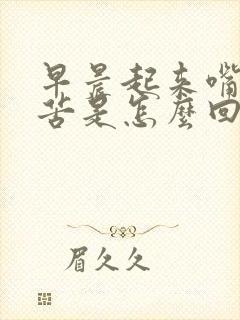 早晨起来嘴
苦是怎麼回
眉久久